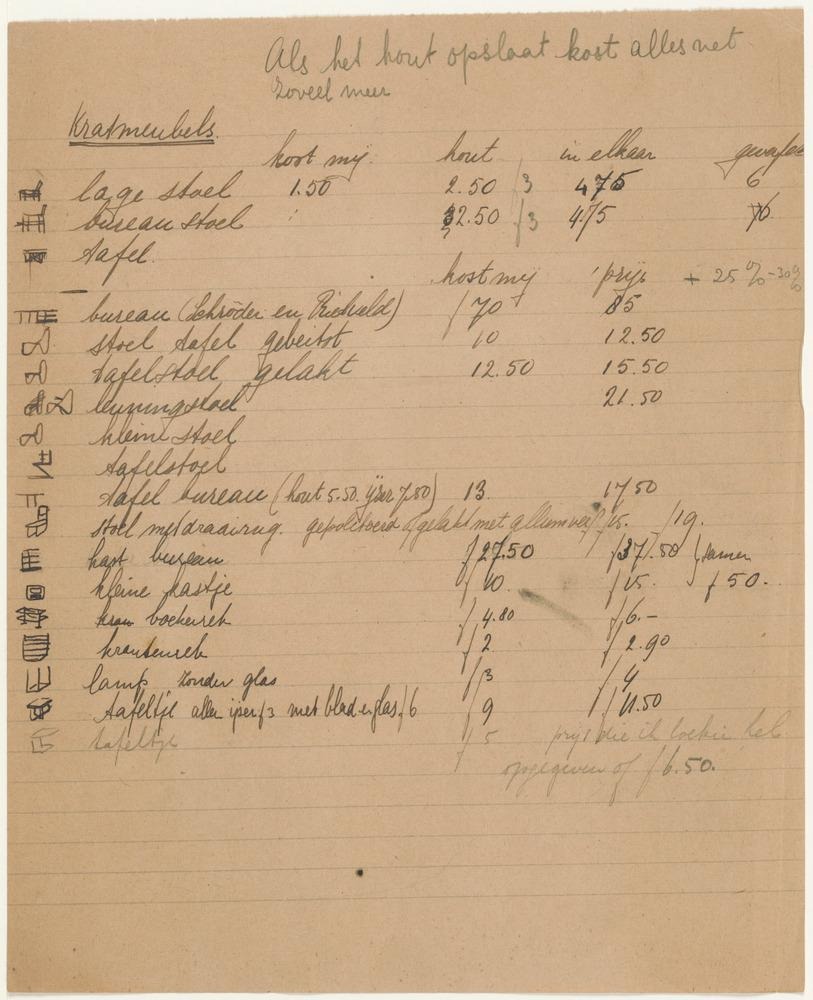 Als het hout opslaat kost alles net
zoveel meer
Kratmeubels.
kost mij. hout in elkaar
lage stoel 1.50 2.50 f3 4.75 6
bureau stoel 2.50 f3 4.75 6
tafel.
kost mij prijs + 25% - 30%
bureau (Schröder en Rietveld) f 70 85
stoel tafel gebeitst 10 12.50
tafelstoel gelakt 12.50 15.50
leuningstoel 21.50
kleine stoel
tafelstoel
tafel bureau (hout 5.50. ijzer 7.50) 13. 17.50
stoel met draairug. gepolitoerd f 15. f 19.
kast bureau f 27.50 f 37.50 } samen
kleine kastje f 10. f 15. f 50.-
boekenrek f 4.80 f 6.-
krantenrek f 2 f 2.90
lamp zonder glas f 3 f 4
tafeltje alleen ijzer f3 met blad en glas f 6 f 9 f 11.50
tafeltje f 5 prijs die ik heb
opgegeven of f 6.50.